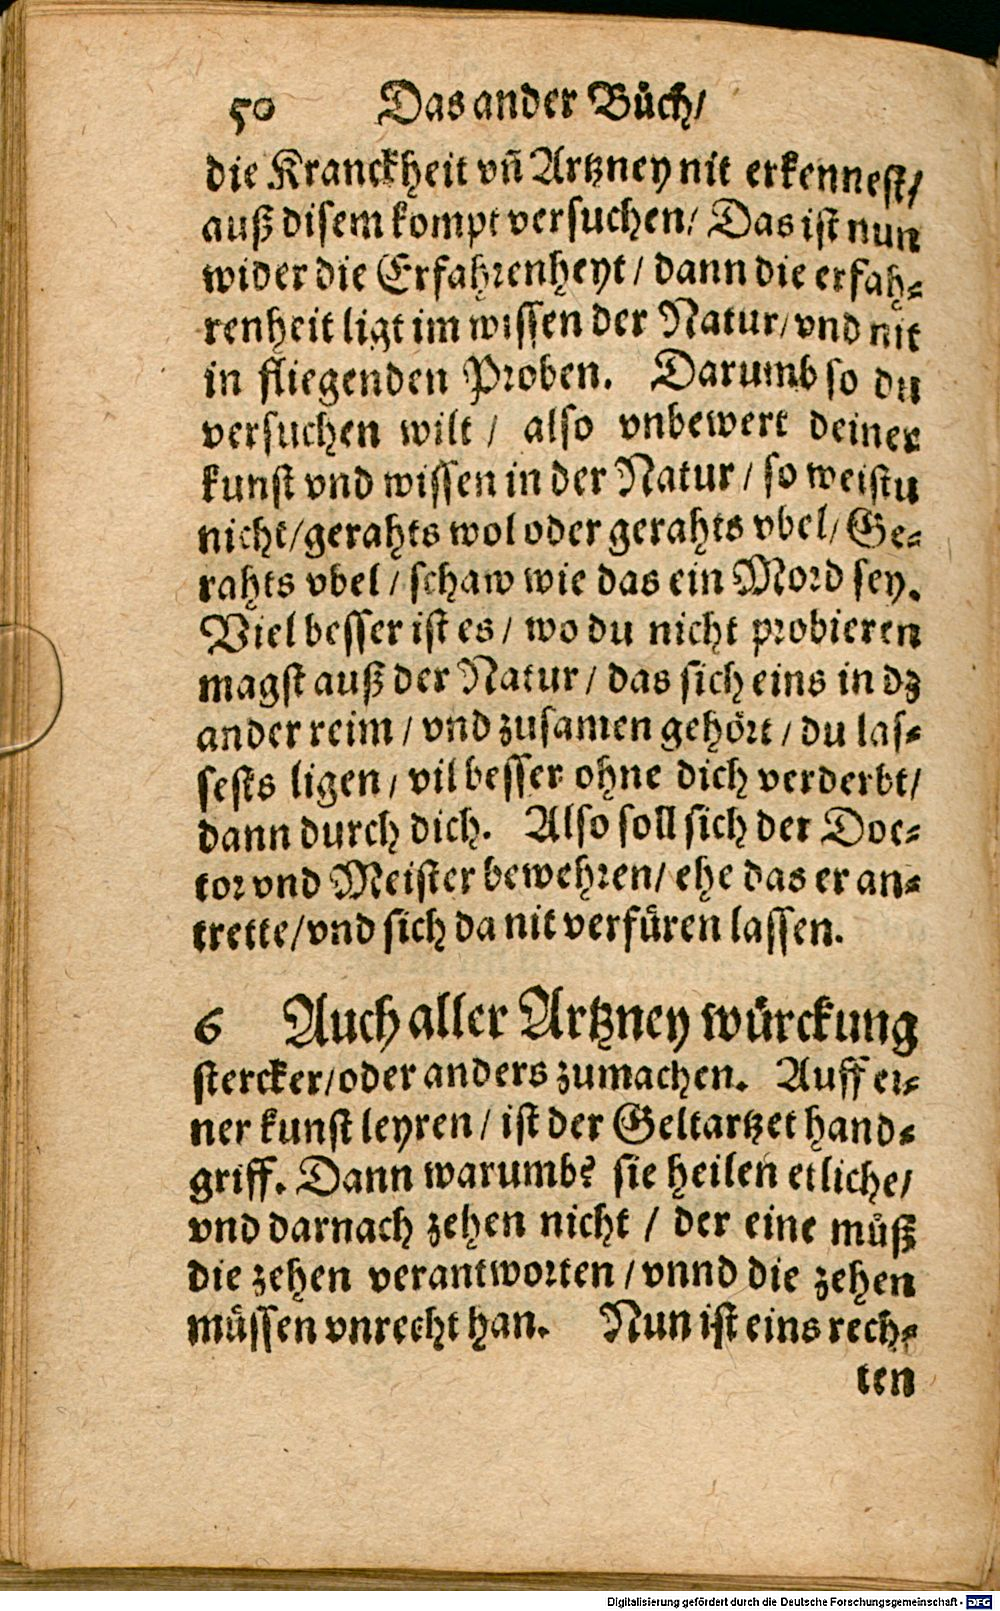 50 Das ander Bůch/
die Kranckheit vñ Artzney nit erkennest/
auß disem kompt versuchen/ Das ist nun
wider die Erfahrenheyt/ dann die erfah-
renheit ligt im wissen der Natur/ vnd nit
in fliegenden Proben. Darumb so du
versuchen wilt/ also vnbewert deiner
kunst vnd wissen in der Natur/ so weistu
nicht/ gerahts wol oder gerahts vbel/ Ge-
rahts vbel/ schaw wie das ein Mord sey.
Viel besser ist es/ wo du nicht probieren
magst auß der Natur/ das sich eins in dz
ander reim/ vnd zusamen gehört/ du las-
sests ligen/ vil besser ohne dich verderbt/
dann durch dich. Also soll sich der Doc-
tor vnd Meister bewehren/ ehe das er an-
trette/ vnd sich da nit verfüren lassen.
6 Auch aller Artzney würckung
stercker/ oder anders zumachen. Auff ei-
ner kunst leyren/ ist der Geltartzet hand-
griff. Dann warumb? sie heilen etliche/
vnd darnach zehen nicht/ der eine můß
die zehen verantworten/ vnnd die zehen
müssen vnrecht han. Nun ist eins rech-
ten
Digitalisierung gefördert durch die Deutsche Forschungsgemeinschaft - DFG